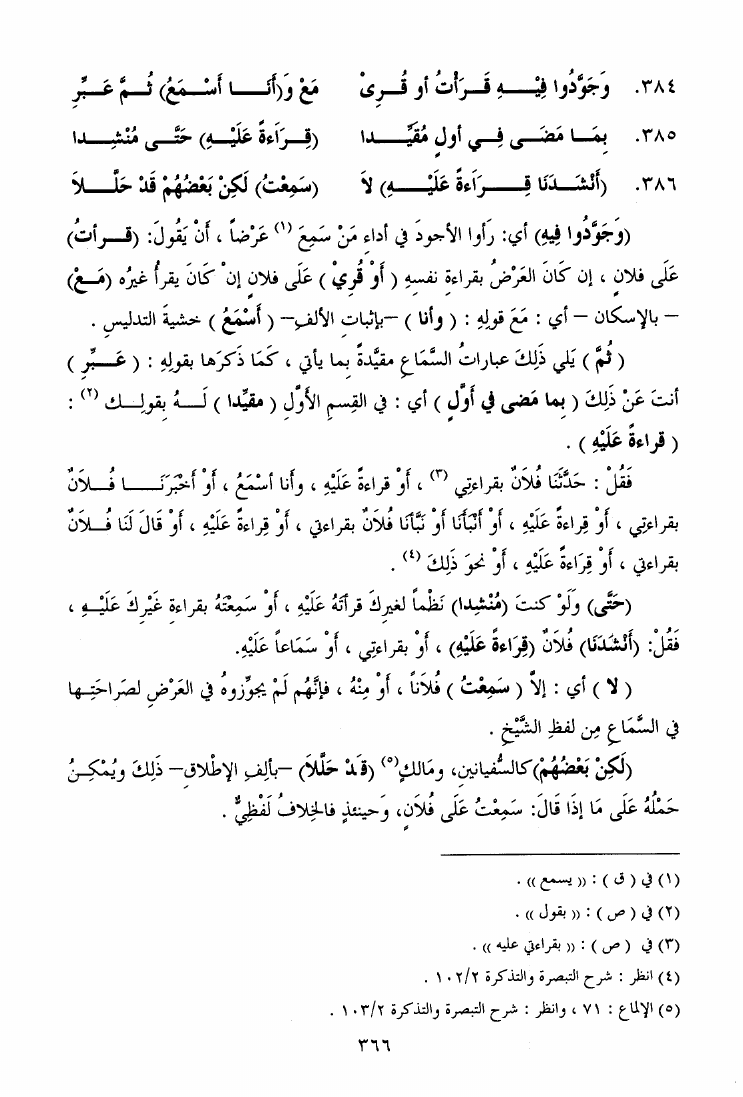 ٣٨٤. وَجَوَّدُوا فِيْــهِ قَــرَأْتُ أو قُــرِئْ مَعْ وَ(أَنَــا أَسْـمَعُ) ثُـمَّ عَبِّرِ
٣٨٥. بِمَـا مَضَـى فِـي أولٍ مُقَيِّـدا (قِـرَاءةً عَلَيْـهِ) حَتَّـى مُنْشِـدا
٣٨٦. (أَنْشَـدَنَا قِــرَاءَةً عَلَيْــهِ) لاَ (سَمِعْتُ) لَكِنْ بَعْضُهُمْ قَدْ حَلَّـلاَ
(وَجَوَّدُوا فِيهِ) أي: رَأوا الأجودَ في أداءِ مَنْ سَمِعَ (١) عَرْضاً ، أَنْ يَقُولَ: (قـرأتُ)
عَلَى فلانٍ ، إن كَانَ العَرْضُ بقراءةِ نفسهِ ( أَوْ قُرِئْ ) عَلَى فلانٍ إنْ كَانَ يقرأُ غيرُه (مَـعْ)
– بالإسكان – أي : مَعَ قولِهِ : ( وأنا ) –بإثبات الألفِ– ( أَسْمَعُ ) خشيةَ التدليسِ .
( ثُمَّ ) يَلي ذَلِكَ عباراتُ السَّماعِ مقيَّدةً بما يأتي ، كَمَا ذكرَها بقولِهِ : ( عَـبِّرِ )
أنتَ عَنْ ذَلِكَ ( بِما مَضى في أوَّلٍ ) أي : في القِسمِ الأوَّلِ ( مقيِّدا ) لَـهُ بقولِـك (٢) :
( قراءةً عَلَيْهِ ) .
فَقُلْ : حَدَّثَنَا فُلاَنٌ بقراءتِي (٣) ، أَوْ قراءةً عَلَيْهِ ، وأنا أسْمَعُ ، أَوْ أَخْبَرَنَـا فُـلاَنٌ
بقراءتِي ، أَوْ قِراءةً عَلَيْهِ ، أَوْ أَنْبَأَنَا أَوْ نَبَّأَنَا فُلاَنٌ بقراءتي ، أَوْ قِراءةً عَلَيْهِ ، أَوْ قَالَ لَنَا فُـلاَنٌ
بقراءتي ، أَوْ قِرَاءةً عَلَيْهِ ، أَوْ نحوَ ذَلِكَ (٤) .
(حَتَّى) وَلَوْ كنتَ (مُنْشِدا) نَظْماً لغيرِكَ قرأتَهُ عَلَيْهِ ، أَوْ سَمِعْتَهُ بقراءةِ غَيْرِكَ عَلَيْـهِ ،
فَقُلْ: (أَنْشَدَنَا) فُلاَنٌ (قِرَاءةً عَلَيْهِ) ، أَوْ بقراءتِي ، أَوْ سَمَاعاً عَلَيْهِ.
( لا ) أي : إلاَّ ( سَمِعْتُ ) فُلاَناً ، أَوْ مِنْهُ ، فإنَّهُم لَمْ يجوِّزوهُ في العَرْضِ لصرَاحَتِـها
في السَّماعِ مِن لفظِ الشَّيْخِ .
(لَكِنْ بَعْضُهُمْ) كالسُّفيانينِ، ومَالكٍ(٥) (قَدْ حَلَّلاَ) –بألِفِ الإطْلاقِ– ذَلِكَ ويُمْكِـنُ
حَمْلُهُ عَلَى مَا إذَا قَالَ: سَمِعْتُ عَلَى فُلاَنٍ، وَحينئذٍ فالخِلافُ لَفْظِيٌّ .
(١) في ( ق ) : (( يسمع )) .
(٢) في ( ص ) : (( بقول )) .
(٣) في ( ص ) : (( بقراءتي عليه )) .
(٤) انظر : شرح التبصرة والتذكرة ١٠٢/٢ .
(٥) الإلماع : ٧١ ، وانظر : شرح التبصرة والتذكرة ١٠٣/٢ .
٣٦٦